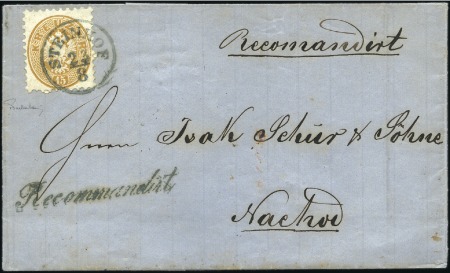 Recomandirt
STEINHOF
23
8
Herrn Isak Schür & Söhne
Recommandirt
Nachod